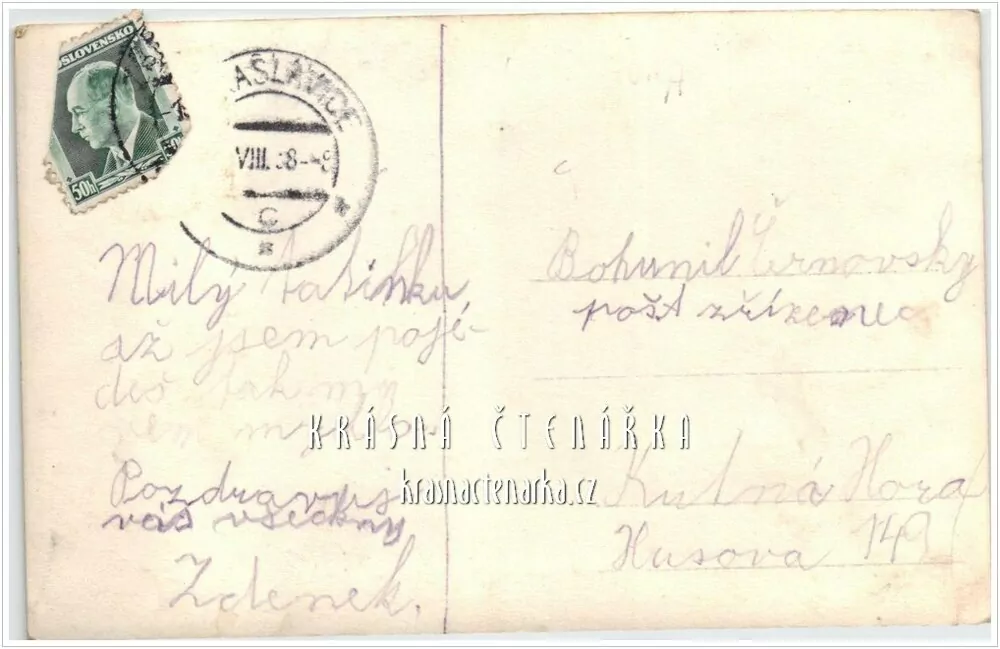 SLOVENSKO
50h
ASLAVICE
VIII. 38
C
Milý tatínku,
až jsem pojé-
deš tak my
vem mýdlo.
Pozdravuji
vás všechny
Zdenek.
Bohumil Černovsky
pošt zřízenec
Kutná Hora
Husova 149
KRÁSNÁ ČTENÁŘKA
krasnactenarka.cz